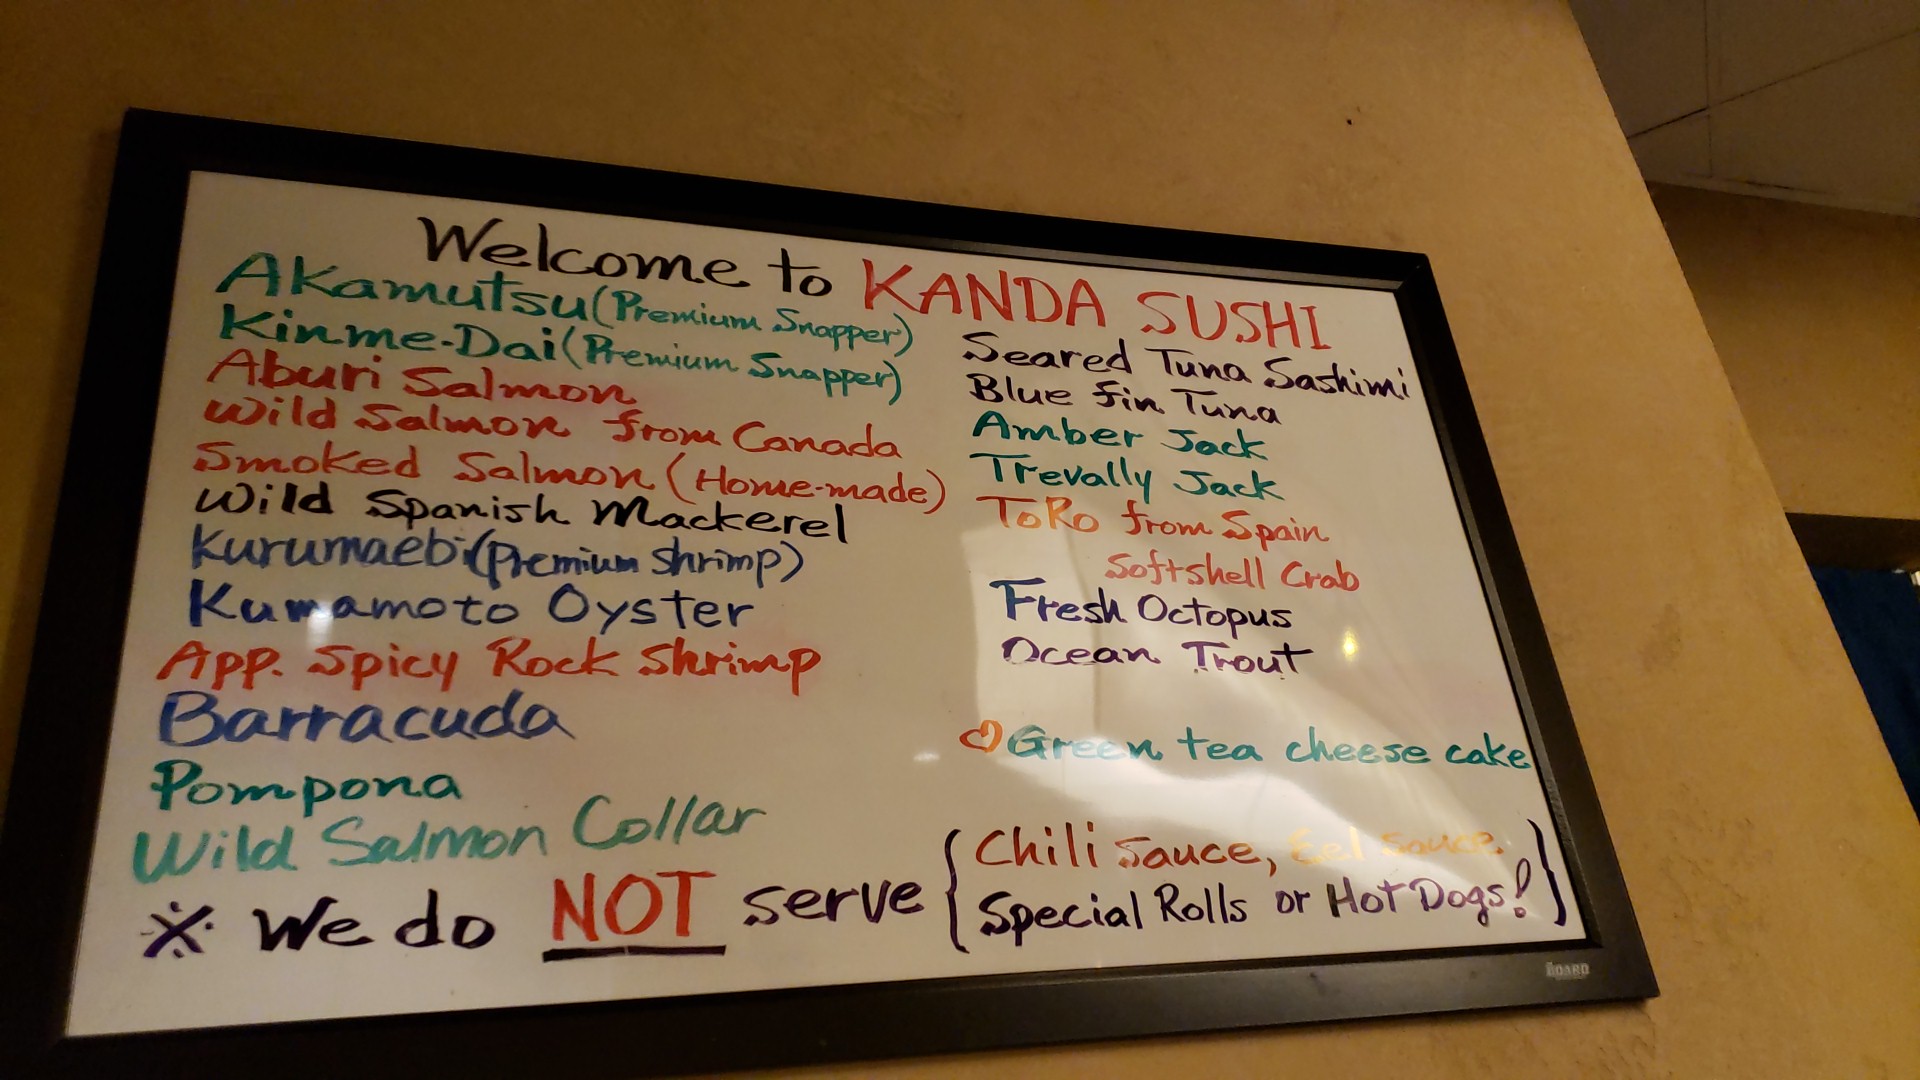 Welcome to KANDA SUSHI
Akamutsu (Premium Snapper)
Kinme-Dai (Premium Snapper)
Aburi Salmon
Wild Salmon from Canada
Smoked Salmon (Home-made)
Wild Spanish Mackerel
Kurumaebi (premium shrimp)
Kumamoto Oyster
App. Spicy Rock Shrimp
Barracuda
Pompona
Wild Salmon Collar
Seared Tuna Sashimi
Blue fin Tuna
Amber Jack
Trevally Jack
ToRo from Spain
Softshell Crab
Fresh Octopus
Ocean Trout
♡ Green tea cheese cake
※ We do NOT serve { Chili Sauce, Eel sauce
Special Rolls or Hot Dogs! }
THE BOARD